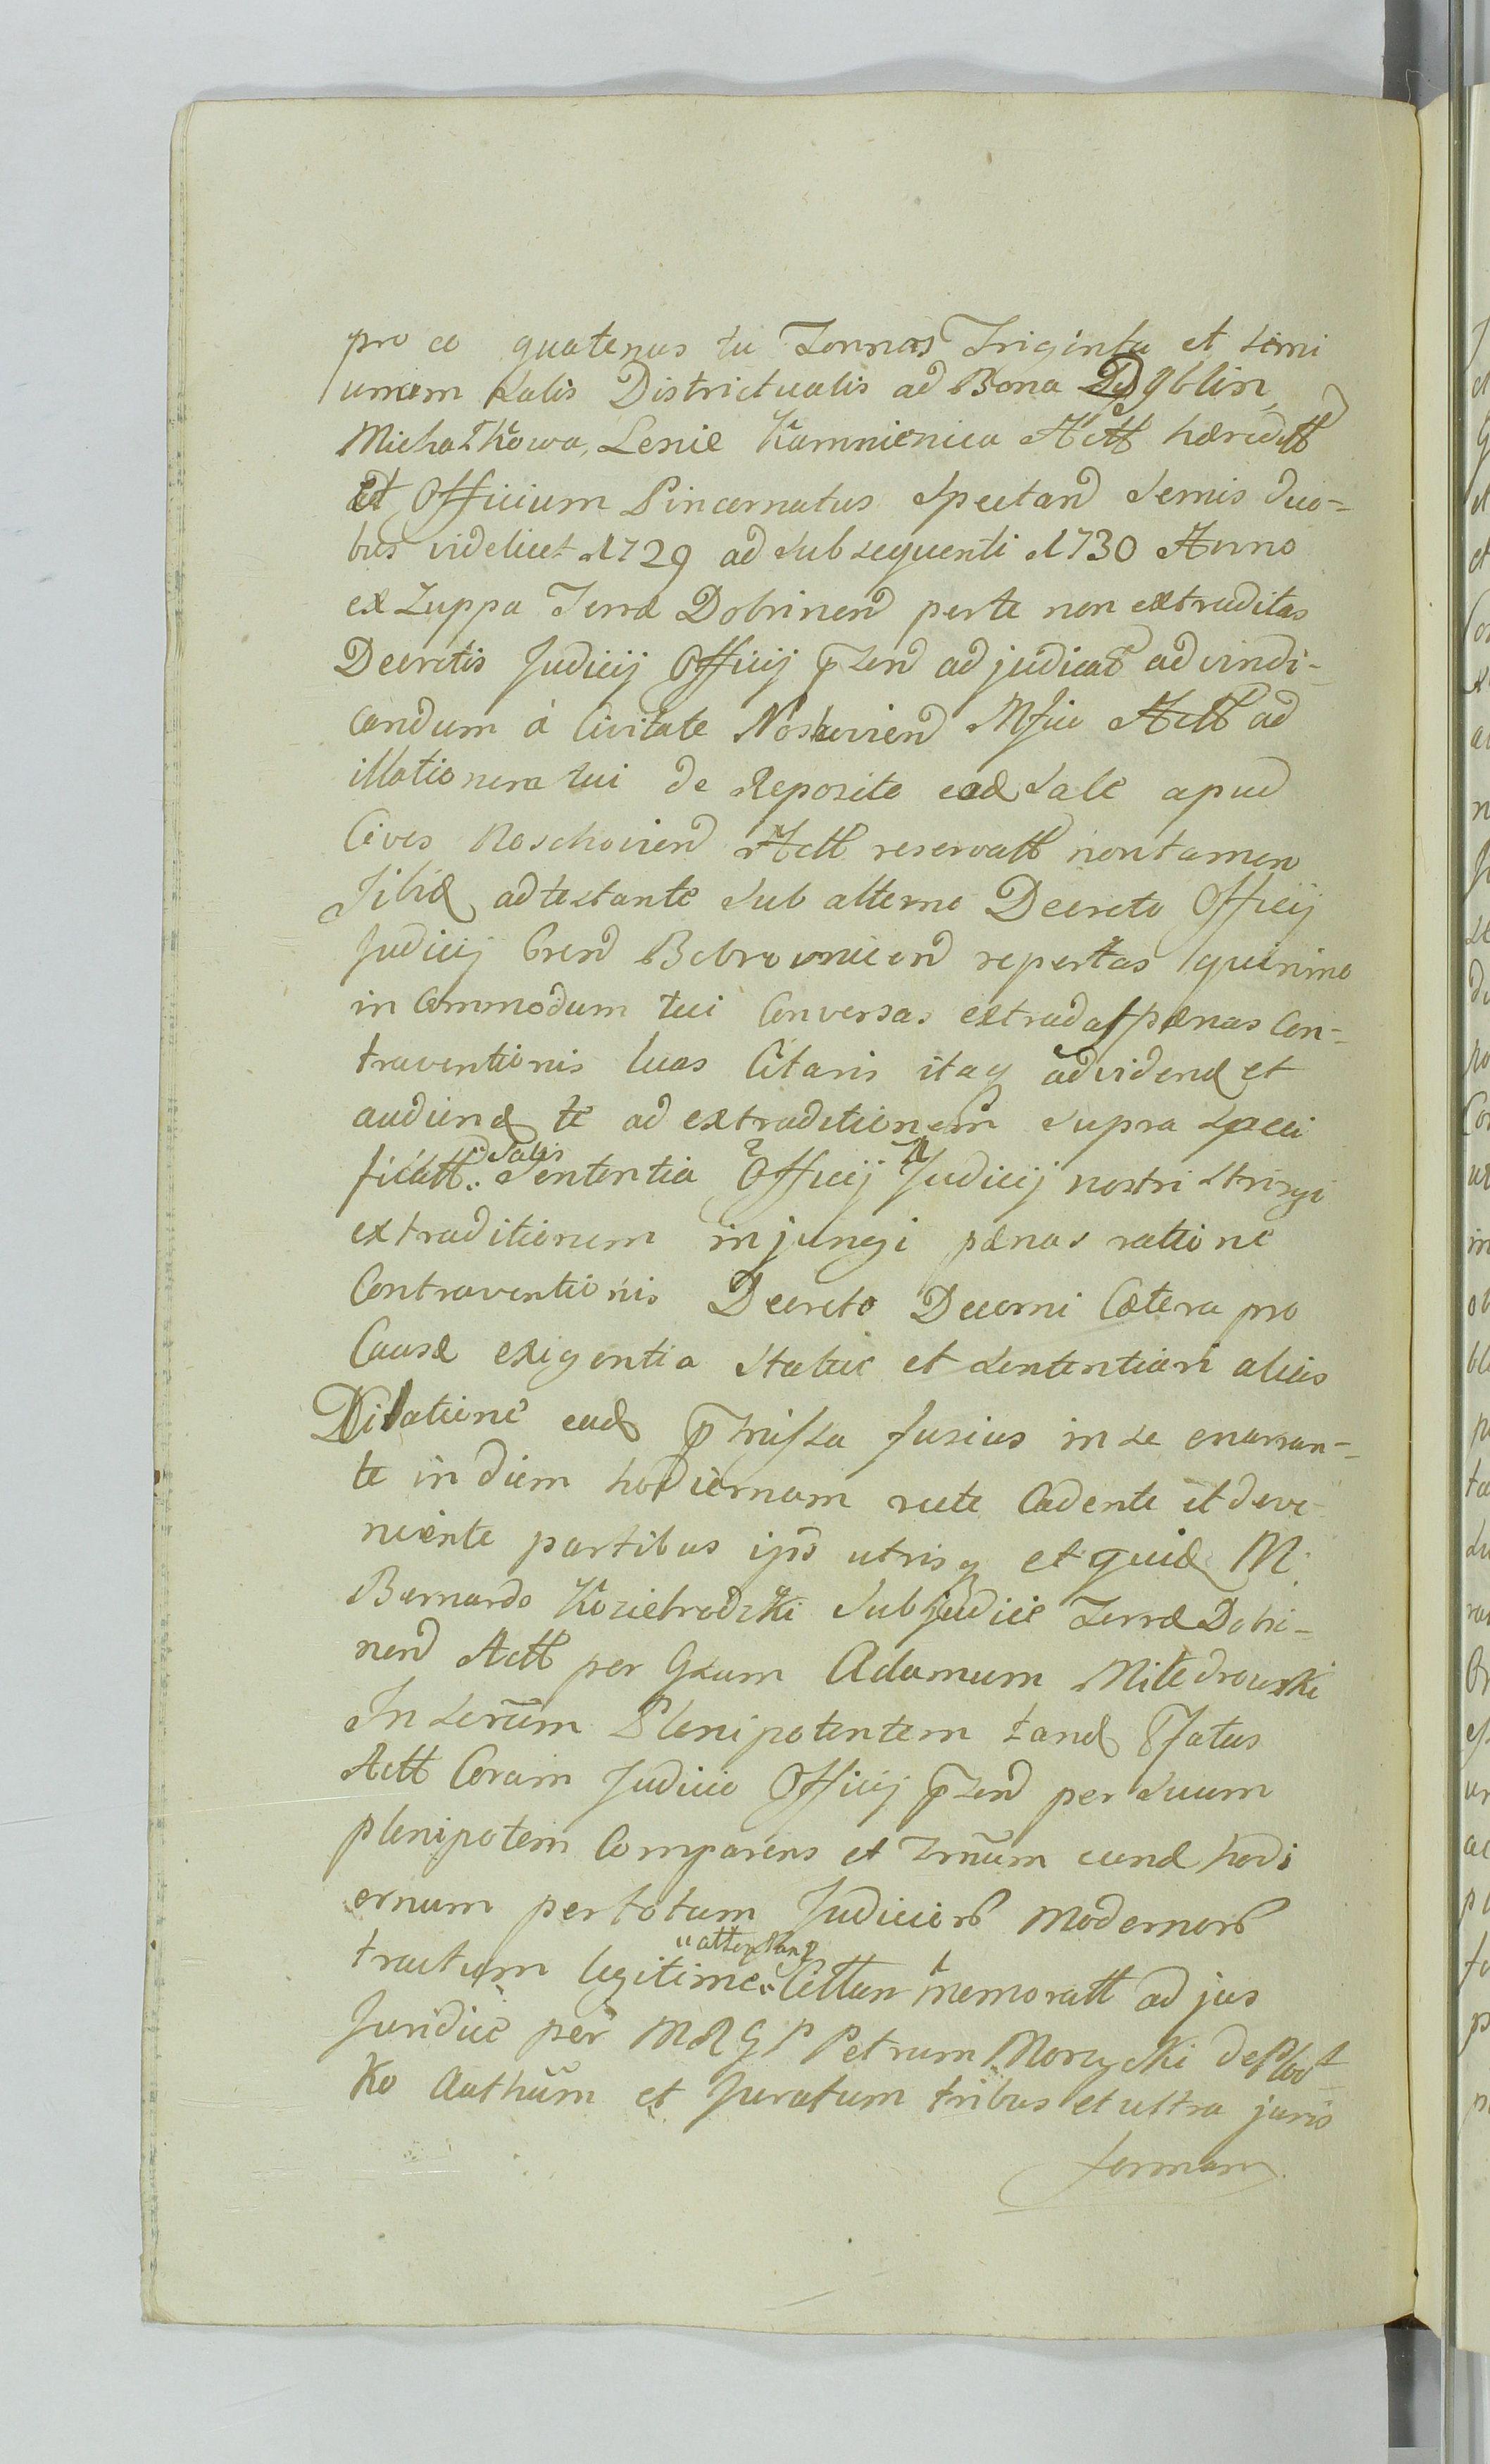 pro eo quatenus tu Tonnas Triginta et semi
unam Salis Districtualis ad Bona Dyblin,
Michałkowa, Lenie Kamnienica Actt hæreditt
et Officium Pincernatus spectand Semis duo-
bus videlicet 1729 ad subsequenti 1730 Anno
ex Zuppa Terræ Dobrinend per te non extraditas
Decretis Judicij Officij pntend adjudicat ad vindi-
candum à Civitate Noskoviend Mfico Actt ad
illationem tui de Reposito eod Sale apud
Cives Noschoviend Actt reservatt non tamen
Sibid attestante Subalterno Decreto Officij
Judicij Crend Bobrovnicend repertas quinimo
in Commodum tui Conversas extradas pænas Con-
traventionis luas Citaris itaq ad videnđ et
audienđ te ad extraditionem supra speci
ficatt: Salis Sententia Officij Judicij nostri stringi
extraditionem injungi pænas ratione
Contraventionis Decreto Decerni Cætera pro
Causæ exigentia Statui et Sententiari alias
Dilatione ead fusius in se enarran-
te in diem hodiernam recte Cadente et deve-
niente partibus ipsis utrisq et quid M.
Barnardo Kozietrodzki Subjudice Terræ Dobri-
nend Actt per Gsum Adamum Mitedrowski
In Terum Plenipotentem tand Pfatus
Actt Coram Judicio Officij pntend per Suum
plenipotem Comparens et Trnum eund hodi
ernum per totam Judicior Modernor
tractum legitime: attentans Cittan memoratt ad jus
Juridice per M R G P Petrum Morzycki de Płow
Ko Authum et Juratum tribus et ultra juris
terman